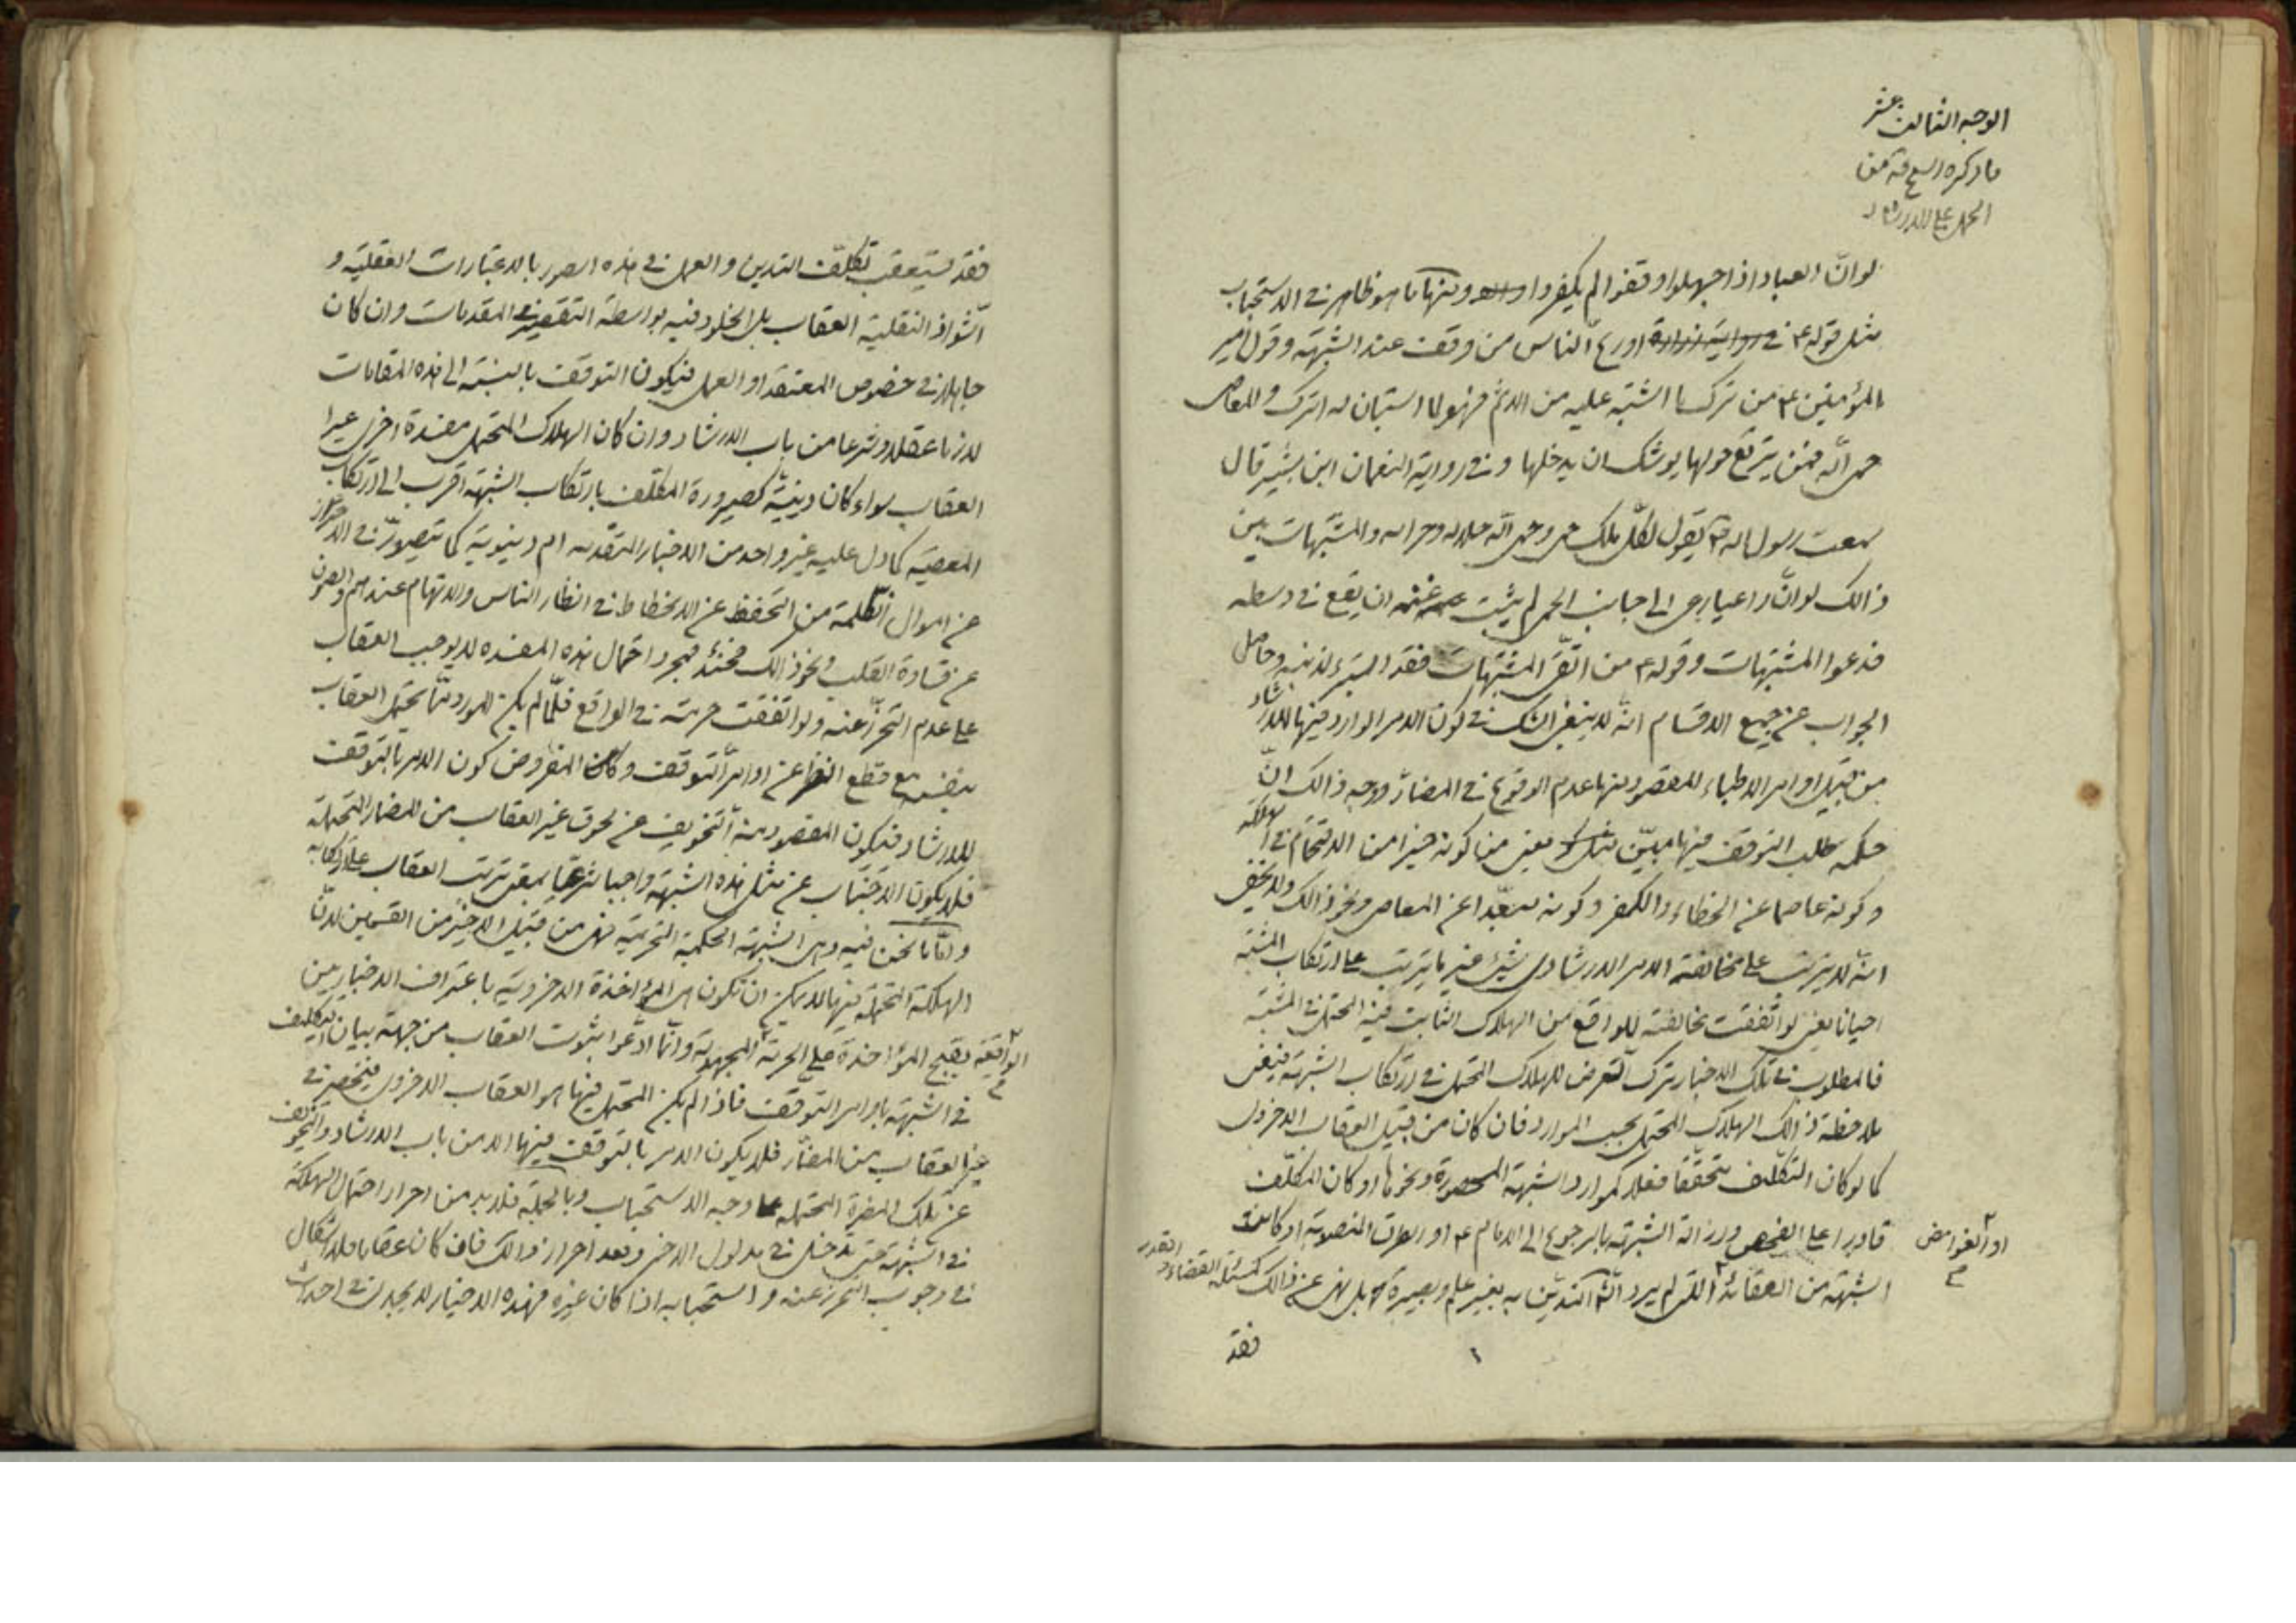 الوجه الثالث عشر
ما ذكره الشيخ قه من
الحمل على الارشاد
لو انّ العباد اذا جهلوا وقفوا لم يكفروا ومنها ما هو ظاهر في الاستحباب
مثل قوله ع في رواية زرارة اورع النّاس من وقف عند الشبهة وقول امير
المؤمنين ع من ترك ما اشتبه عليه من الاثم فهو لما استبان له اترك والمعاصى
حمى اللّه فمن يرتع حولها يوشك ان يدخلها وفي رواية النعمان ابن بشير قال
سمعت رسول اله ص يقول لكلّ ملك حمى وحمى اللّه حلاله وحرامه والمشتبهات بين
ذالك لو انّ راعيا رعى الى جانب الحمى لم يثبت غنمه ان يقع في وسطه
فدعوا المشتبهات وقوله ع من اتّقى المشتبهات فقد استبرء لدينه وحاصل
الجواب عن جميع الاقسام انّه لا ينبغى الشك في كون الامر الوارد فيها للارشاد
من قبيل اوامر الاطباء المقصود منها عدم الوقوع في المضارّ ووجه ذالك انّ
حكمة طلب التوقف فيها مبيّن يعنى من كونه خيرا من الاقتحام في الهلكة
وكونه عاصما عن الخطاء والكفر وكونه مبعّدا عن المعاصى ونحو ذالك ولا يخفى
انّه لا يترتب على مخالفة الامر الارشادى شيئ غير ما يترتب على ارتكاب المشتبه
احيانا يعنى لو اتّفقت مخالفته للواقع من الهلاك الثابت فيه المحتمل في المشتبه
فالمطلوب في تلك الاخبار ترك التّعرض للهلاك المحتمل في ارتكاب الشبهة فينبغى
ملاحظة ذالك الهلاك المحتمل بحسب الموارد فان كان من قبيل العقاب الاخروى
كما لو كان التكليف متحققا فعلا كموارد الشبهة المحصورة ونحوها او كان المكلّف
قادرا على الفحص وازالة الشبهة بالرجوع الى الامام ع او الطرق المنصوبة او كانت
الشبهة من العقائد الّتى لم يرد الشّارع التديّن به بغير علم وبصيرة بل نهى عن ذالك كمسئلة القضاء والقدر
او الغوامض
م
فقد
فقد يستعقب تكلّف التدين والعمل في هذه الصور بالاعتبارات العقلية و
الشّواذ النقلية العقاب بل الخلود فيه بواسطة التقصير في المقدمات وان كان
جاهلا في خصوص المعتقد او العمل فيكون التوقف بالنسبة الى هذه المقامات
لازما عقلا وشرعا من باب الارشاد وان كان الهلاك المحتمل مفسدة اخرى غير
العقاب سواء كان دينيّة كصيرورة المكلّف بارتكاب الشبهة اقرب الى ارتكاب
المعصية كما دل عليه غير واحد من الاخبار المتقدمه ام دنيوية كما يتصوّر في الاحتراز
عن اموال الظّلمة من التحفظ عن الانحطاط في انظار الناس والاتهام عندهم والصون
عن قساوة القلب ونحو ذالك فحينئذ فمجرد احتمال هذه المفسده لا يوجب العقاب
على عدم التحرّز عنه ولو اتفقت حرمته في الواقع فلمّا لم يكن المورد ممّا يحتمل العقاب
بنفسه مع قطع النظر عن اوامر التوقف وكان المفروض كون الامر بالتوقف
للارشاد فيكون المقصود منه التخويف عن لحوق غير العقاب من المضار المحتملة
فلا يكون الاجتناب عن مثل هذه الشبهة واجبا شرعيّا بمعنى ترتب العقاب على ارتكابه
وامّا ما نحن فيه وهى الشبهة الحكمية التحريميه فهى من قبيل الاخير من القسمين لانّ
الهلكة المحتملة فيها لا يمكن ان تكون هى المؤاخذة الاخروية باعتراف الاخباريين
بقبح المؤاخذة على الحرمة المجهولة وانّما ادّعوا ثبوت العقاب من جهة بيان التكليف
الواقعية
م
في الشبهة باوامر التوقف فاذا لم يكن المحتمل فيها هو العقاب الاخروى فينحصر في
غير العقاب من المضارّ فلا يكون الامر بالتوقف فيها الا من باب الارشاد والتخويف
عن تلك المضرة المحتمله على وجه الاستحباب وبالجملة فلا بد من احراز احتمال الهلكة
في الشبهة حتى تدخل في مدلول الاخبار وبعد احراز ذالك فان كان عقابا فلا اشكال
في وجوب التحرز عنه واستحبابه اذا كان غيره فهذه الاخبار لا يجدى في احداث